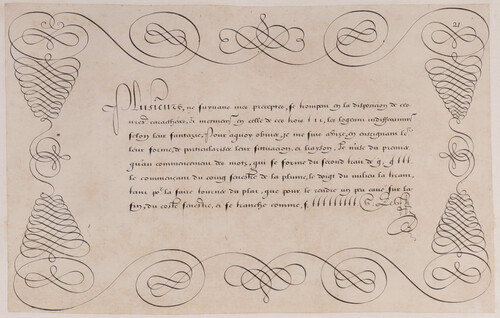 21
Plusieurs, ne suivans mes preceptes, se trompent en la disposition de ces
mes caracteres, & mesmement en celle de ces trois l l l, les logeans indifferemment
selon leur fantasie. Pour à quoy obvier, je me suis advisé, en enseignant
leur forme, de particulariser leur situation, & liayson. Je n'use du premier
qu'au commencement des mots, qui se forme du second trait de q. q l l l.
le commençant du coing senestre de la plume, le doigt du milieu la tirant,
tant pour la faire tourner du plat, que pour le rendre un peu cave sur la
fin, du costé senestre, & se tranche comme, f. l l l l l l l l l l